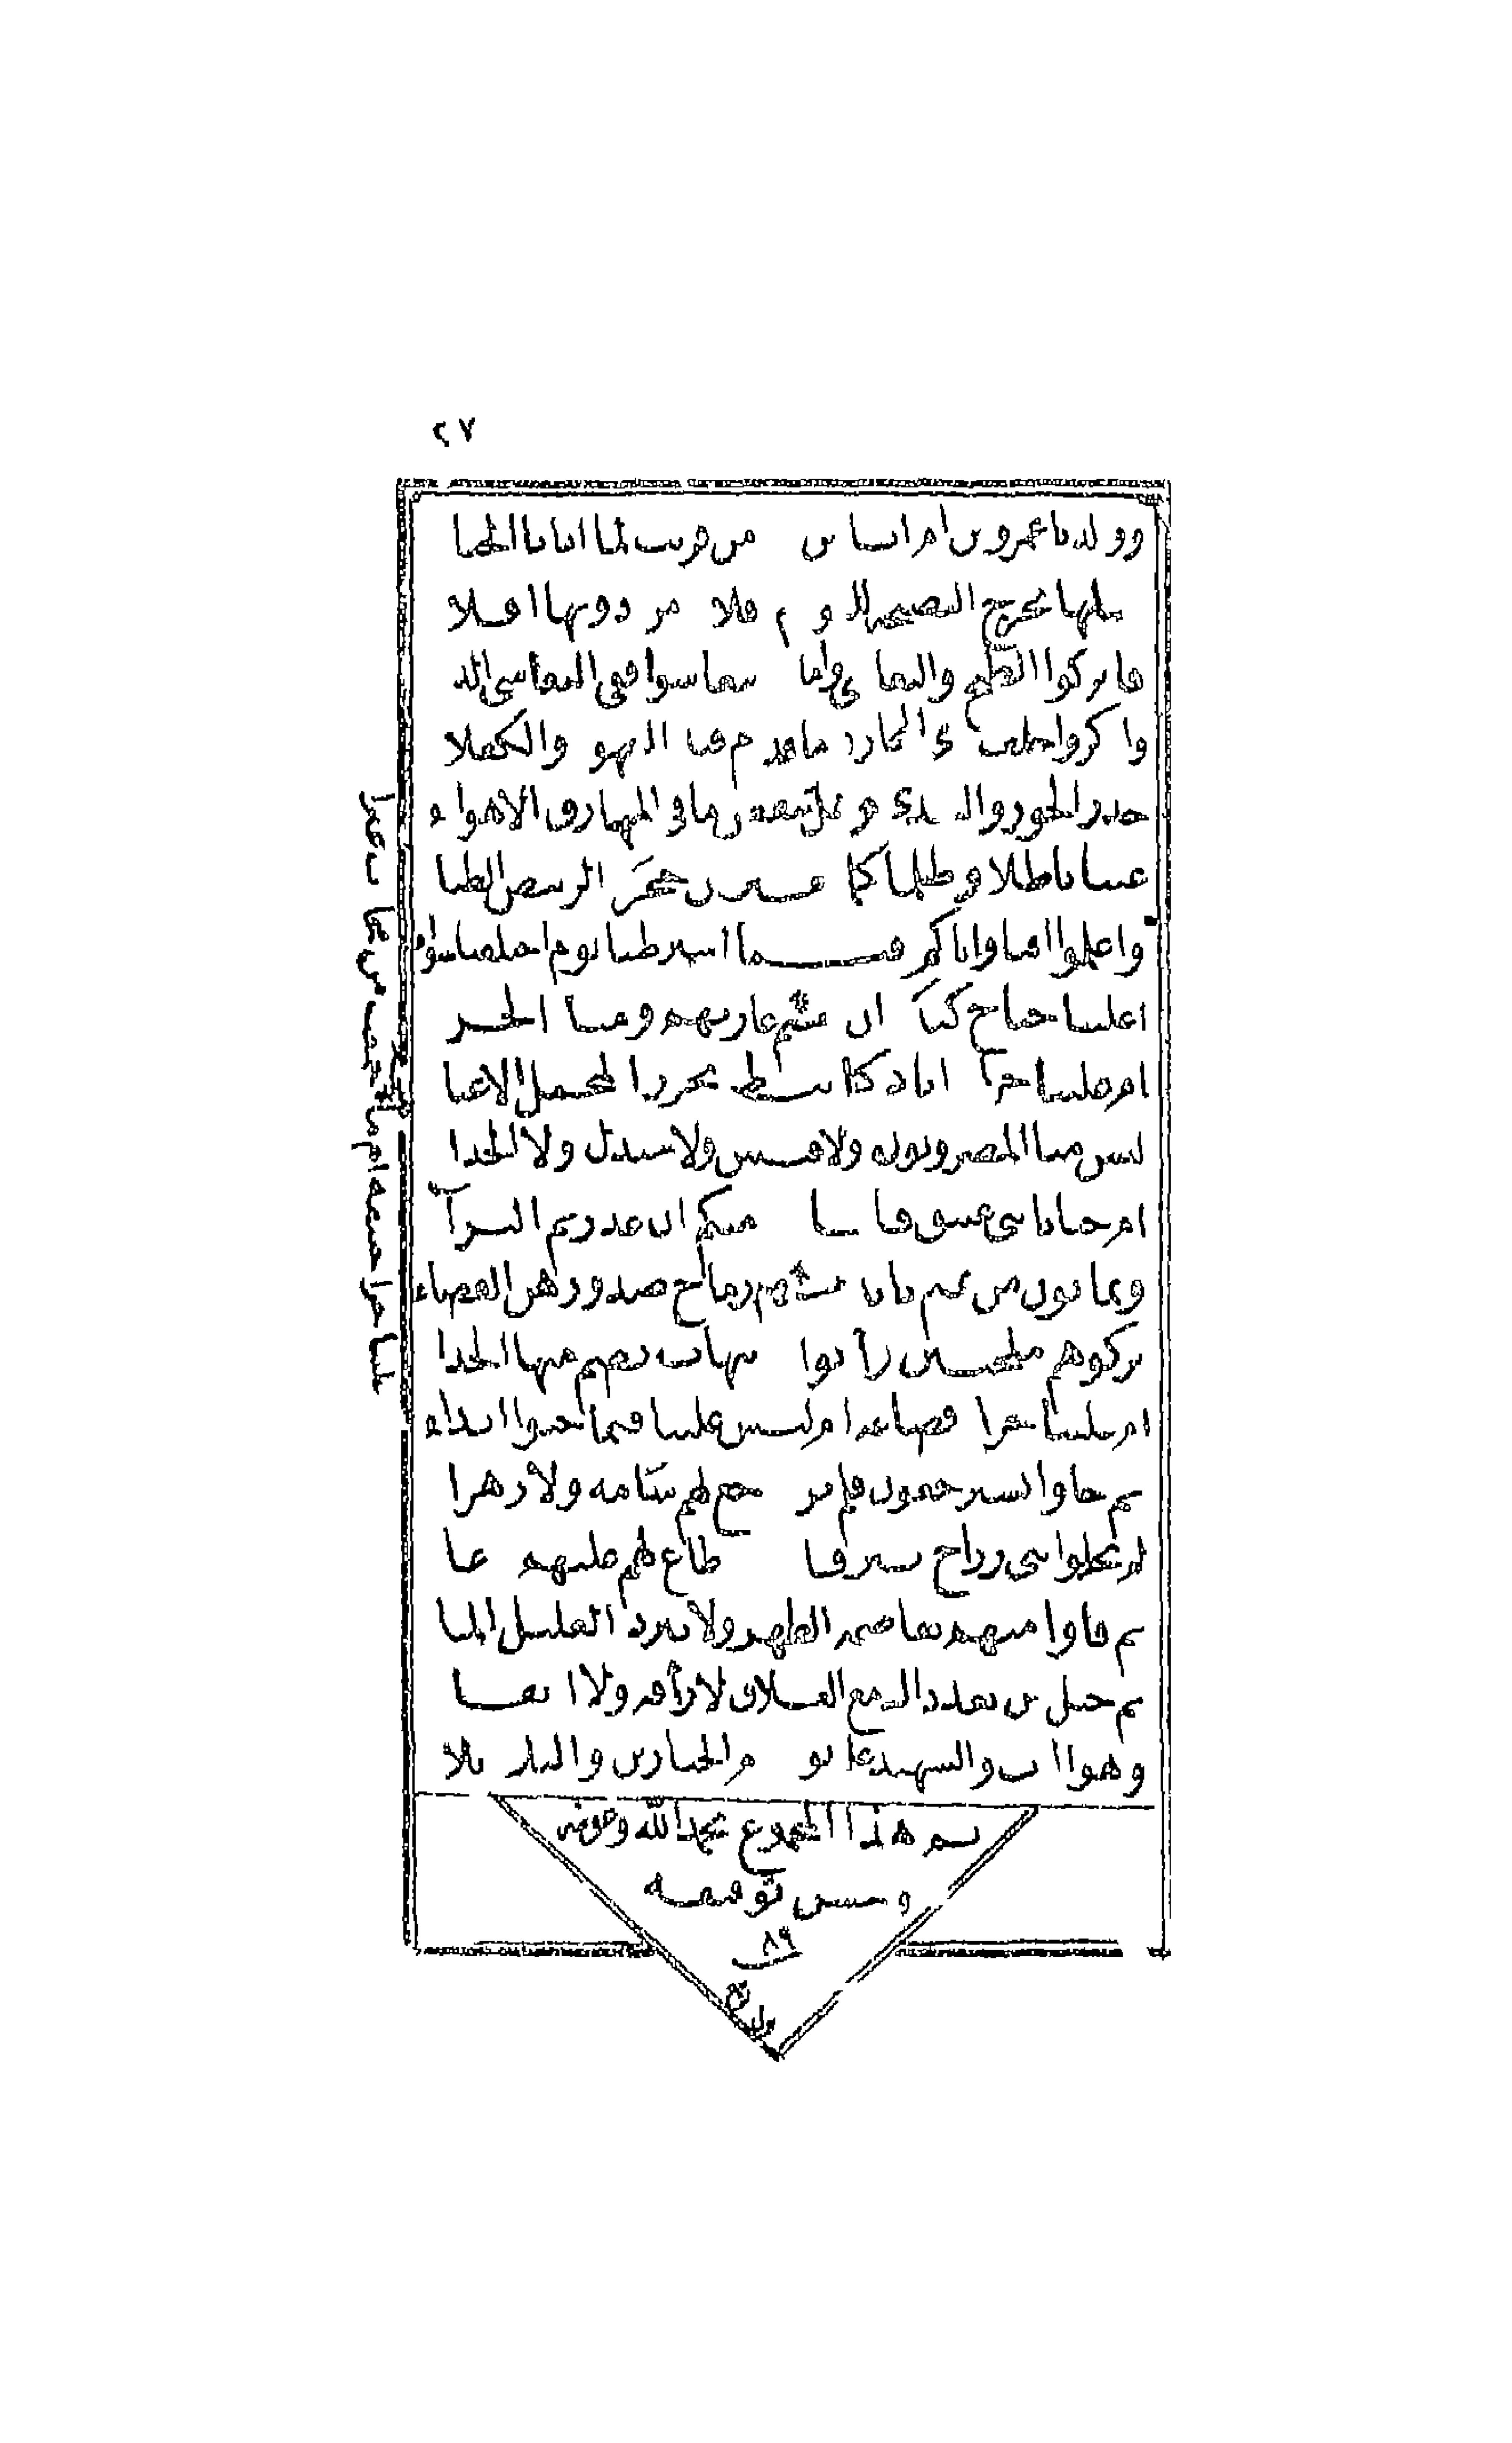 ٢٧
وولدنا عمرو بن ام اناس من قريب لما اتانا الحبا
مثلها تخرج النصيحة للقوم فلاة من دونها افلا
فاتركوا الطيخ والتعاشي واما تتعاشوا ففي التعاشي الد
واذكروا حلف ذي المجاز وما قدم فيه العهود والكفلا
حذر الجور والتعدي وهل ينقض ما في المهارق الاهواء
عننا باطلا وظلما كما تعتر عن حجرة الربيض الظبا
واعلموا اننا واياكم فيما اشترطنا يوم اختلفنا سواء
اعلينا جناح كندة ان يغنم غازيهم ومنا الجزا
ام علينا جرا اياد كما نيط بجوز المحمل الاعبا
ليس منا المضربون ولا قيس ولا جندل ولا الحدا
ام جنايا بني عتيق فانا منكم ان غدرتم البرآ
وثمانون من تميم بايديهم رماح صدورهن القضاء
تركوهم ملحبين وآبوا بنهاب يصم منها الحدا
ام علينا جرا قضاعة ام ليس علينا فيما جنوا انداء
ثم جاوا يسترجعون فلم ترجع لهم شامة ولا زهرا
لم يحلوا بني رزاح ببرقا نطاع لهم عليهم دعا
ثم فاوا منهم بقاصمة الظهر ولا يبرد الغليل الما
ثم خيل من بعد ذاك مع الغلاق لا رأفة ولا ابقا
وهو الرب والشهيد على يوم الحيارين والبلا بلا
تم هذا المجموع بحمد الله وعونه
وحسن توفيقه
ام علينا جرا حنيفة ام ما جمعت من محارب غبرا